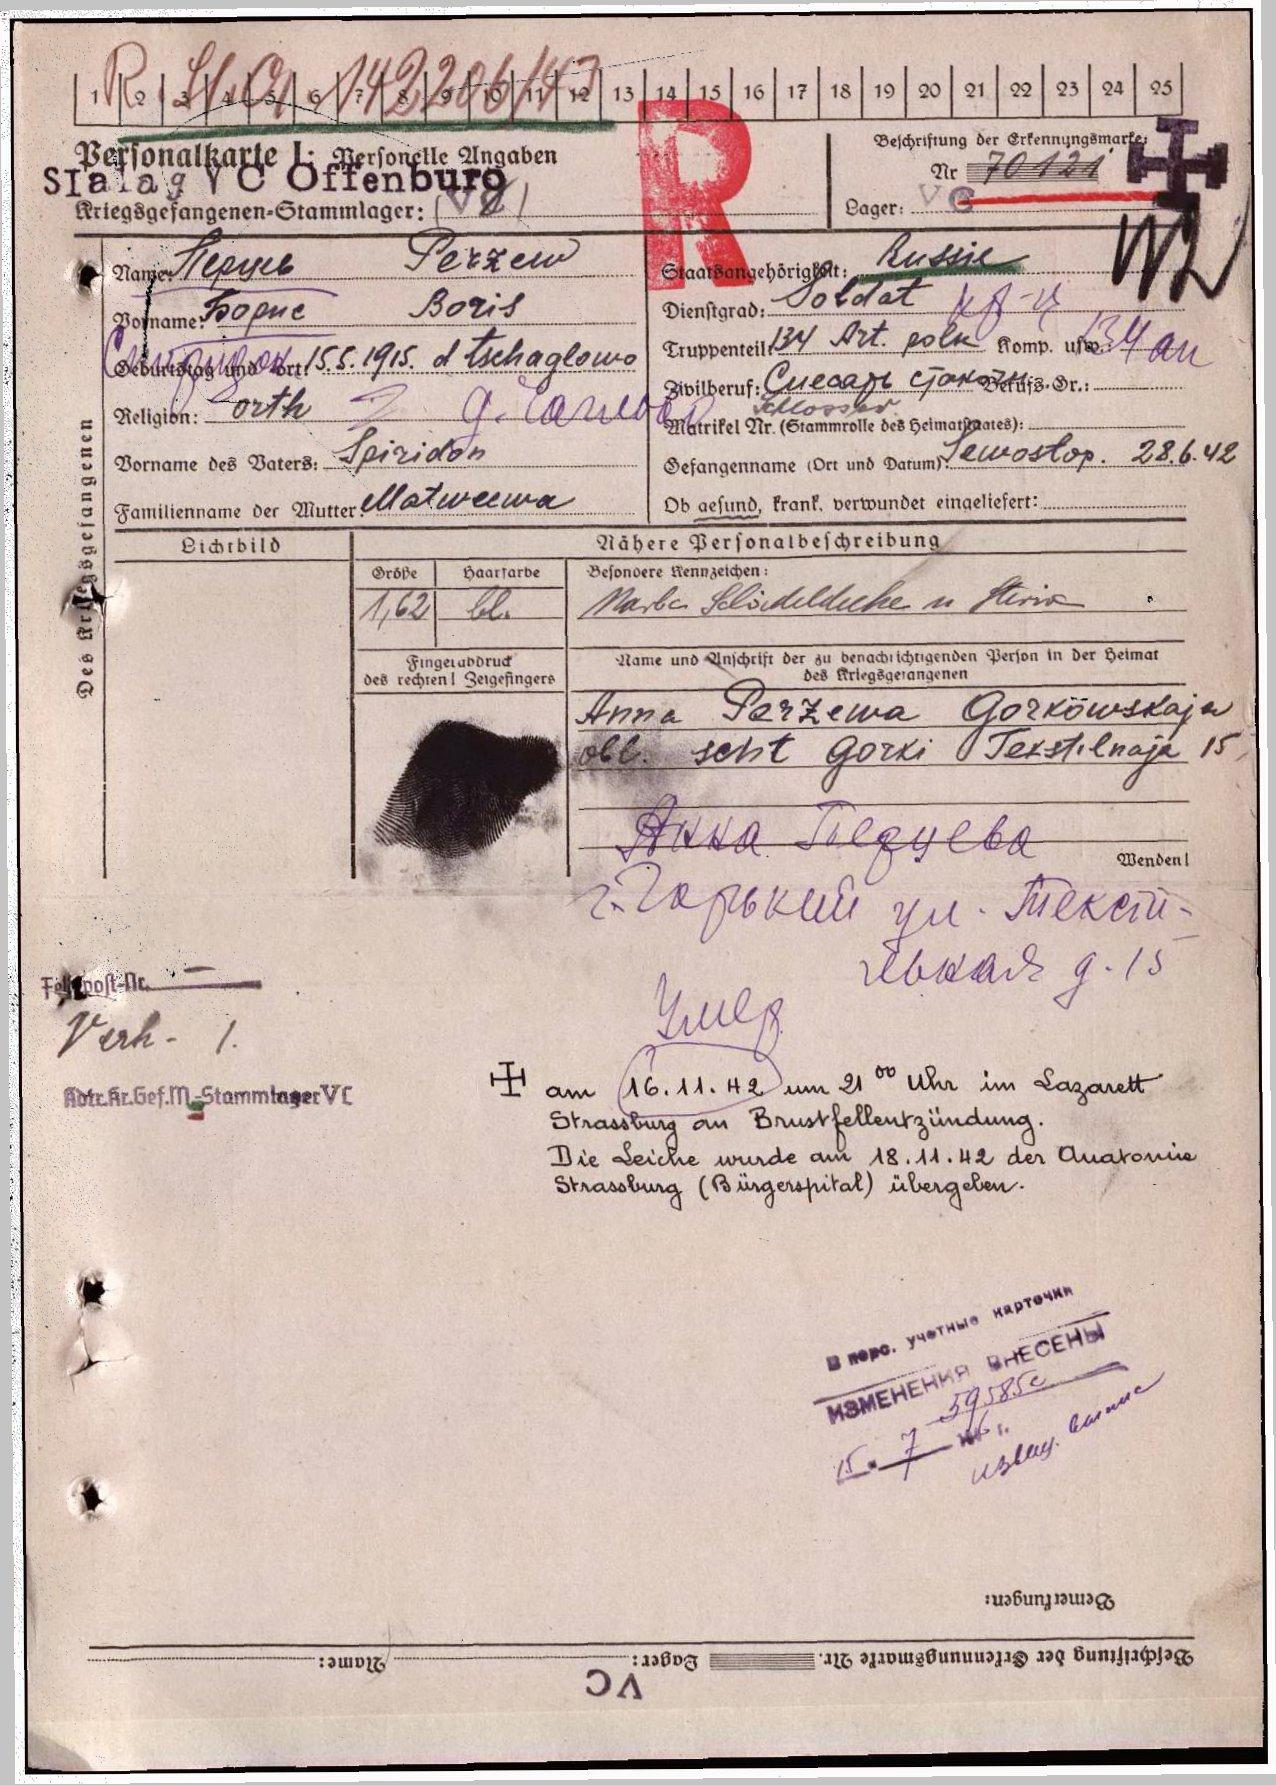 1 2 3 4 5 6 7 8 9 10 11 12 13 14 15 16 17 18 19 20 21 22 23 24 25
R. 142206/43
R
Personalkarte I: Personelle Angaben
Stalag V C Offenburg
Kriegsgefangenen-Stammlager: V C
Beschriftung der Erkennungsmarke:
Nr 70121
Lager: V C
Des Kriegsgefangenen
Name: Перцев Perzew
Vorname: Борис Boris
Geburtstag und -ort: 15.5.1915. d Tschaglowo
Religion: orth
Vorname des Vaters: Spiridon
Familienname der Mutter: Matweewa
Staatsangehörigkeit: Russie
Dienstgrad: Soldat кр-ц
Truppenteil: 134 Art. polk Komp. usw.: 134 ап
Zivilberuf: Слесарь Berufs-Gr.:
Schlosser
Matrikel Nr. (Stammrolle des Heimatstaates):
Gefangenname (Ort und Datum): Sewostop. 28.6.42
Ob gesund, krank, verwundet eingeliefert:
Lichtbild
Nähere Personalbeschreibung
Größe Haarfarbe Besondere Kennzeichen:
1,62 bl. Narbe Schädeldecke u Stirn
Fingerabdruck
des rechten! Zeigefingers
Name und Anschrift der zu benachrichtigenden Person in der Heimat
des Kriegsgefangenen
Anna Perzewa Gorkowskaja
obl. scht Gorki Tekstilnaja 15
Анна Перцева
Wenden!
г. Горький ул. Тексти-
льная д. 15
Feldpost-Nr. —
Verh- 1.
Kdtr.Kr.Gef.M.-Stammlager V C
Умер
am 16.11.42 um 21 00 Uhr im Lazarett
Strassburg an Brustfellentzündung.
Die Leiche wurde am 18.11.42 der Anatomie
Strassburg (Bürgerspital) übergeben.
В перс. учетные карточки
ИЗМЕНЕНИЯ ВНЕСЕНЫ
59585с
15. 7
Bemerkungen:
Beschriftung der Erkennungsmarke Nr. Lager: Name:
VC